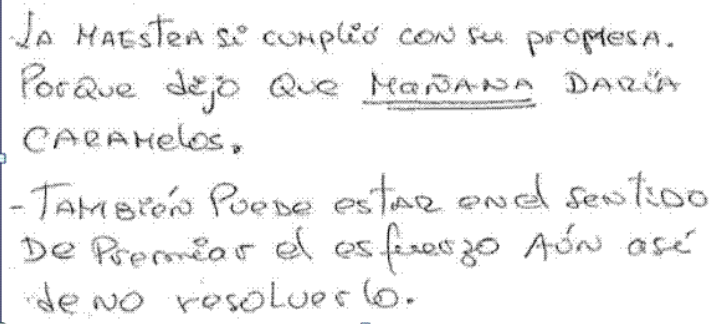 La Maestra si cumplió con su promesa.
Porque dijo que Mañana Daría
Caramelos.
- También Puede estar en el sentido
De Premiar el esfuerzo Aún así
de no resolverlo.